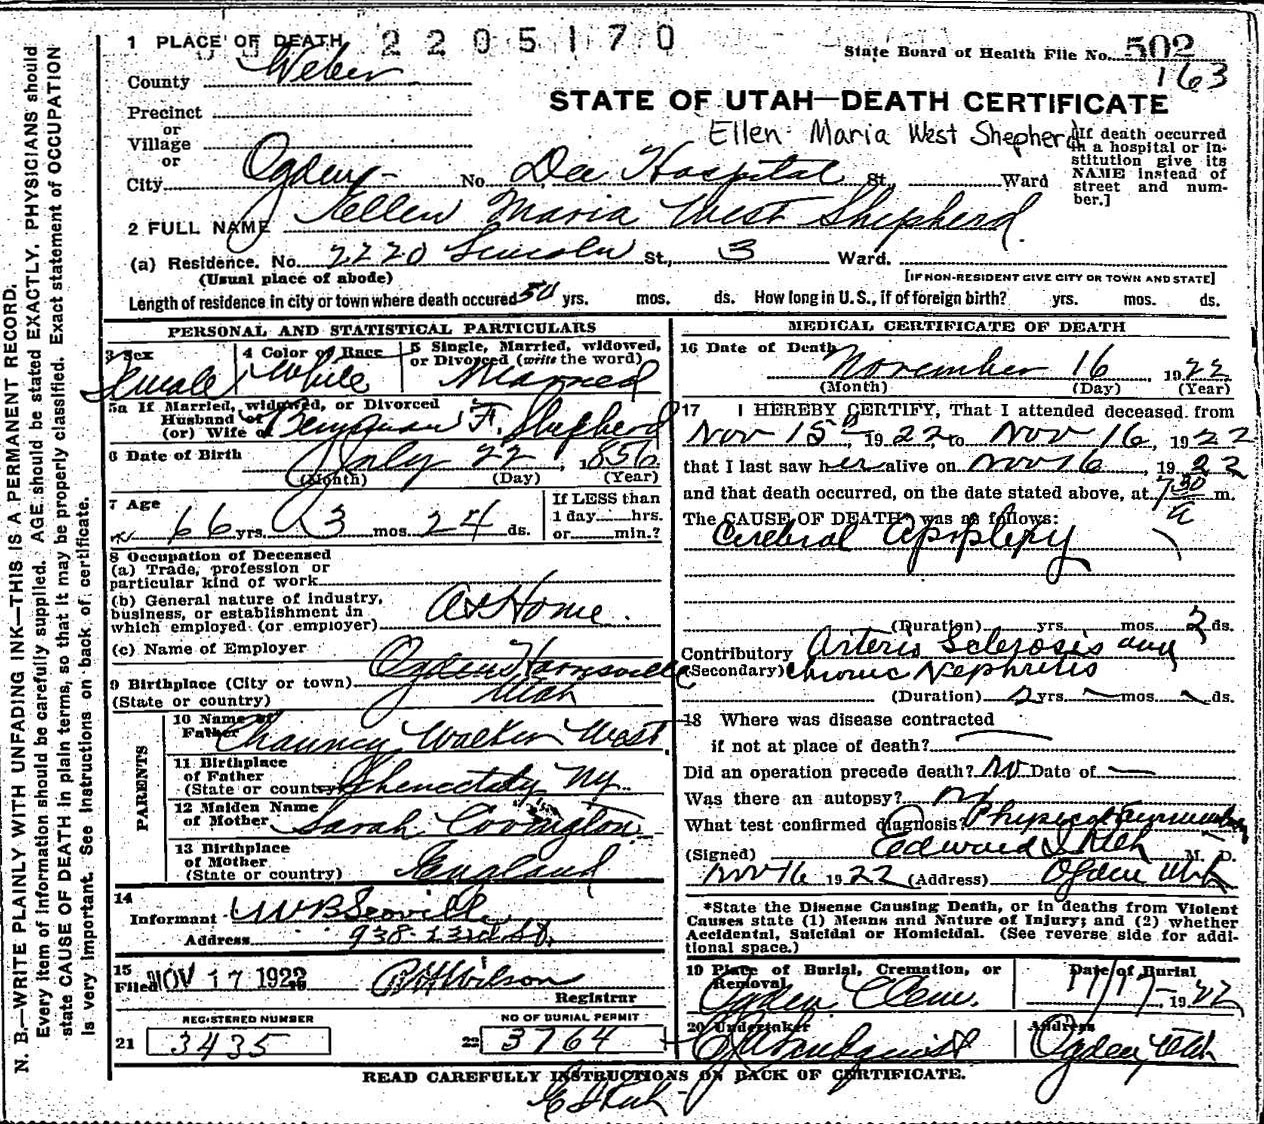 1 PLACE OF DEATH 2205170
State Board of Health File No. 502
163
County Weber
Precinct
or
Village
or
City Ogden No. Dee Hospital St. Ward
STATE OF UTAH—DEATH CERTIFICATE
Ellen Maria West Shepherd
[If death occurred in a hospital or institution give its NAME instead of street and number.]
2 FULL NAME Ellen Maria West Shepherd
(a) Residence. No. 2220 Lincoln St., 3 Ward.
(Usual place of abode)
[IF NON-RESIDENT GIVE CITY OR TOWN AND STATE]
Length of residence in city or town where death occured 50 yrs. mos. ds. How long in U. S., if of foreign birth? yrs. mos. ds.
PERSONAL AND STATISTICAL PARTICULARS
3 Sex
Female
4 Color or Race
White
5 Single, Married, widowed, or Divorced (write the word)
Married
5a If Married, widowed, or Divorced
Husband of
(or) Wife of Benjaman F. Shepherd
6 Date of Birth July 22, 1856
(Month) (Day) (Year)
7 Age
66 yrs. 3 mos. 24 ds.
If LESS than
1 day......hrs.
or......min.?
8 Occupation of Deceased
(a) Trade, profession or
particular kind of work
(b) General nature of industry,
business, or establishment in
which employed (or employer) At Home.
(c) Name of Employer
9 Birthplace (City or town) Ogden Harrisville
(State or country) Utah
PARENTS
10 Name of
Father Chauncy Walker West
11 Birthplace
of Father
(State or country) Shenectady Ny.
12 Maiden Name
of Mother Sarah Covington
13 Birthplace
of Mother
(State or country) England
14
Informant W B Scoville
Address 938-23rd St.
15
Filed NOV 17 1922 Wilson
Registrar
REGISTERED NUMBER
21 3435
NO OF BURIAL PERMIT
22 3764
MEDICAL CERTIFICATE OF DEATH
16 Date of Death
November 16 1922
(Month) (Day) (Year)
17 I HEREBY CERTIFY, That I attended deceased from
Nov 15th, 1922 to Nov 16, 1922
that I last saw her alive on Nov 16, 1922
and that death occurred, on the date stated above, at 7 30 a m.
The CAUSE OF DEATH* was as follows:
Cerebral Apoplexy
(Duration) yrs. mos. 2 ds.
Contributory Arterio Sclerosis and
(Secondary) chronic Nephritis
(Duration) 2 yrs. — mos. — ds.
18 Where was disease contracted
if not at place of death?
Did an operation precede death? No Date of —
Was there an autopsy? no
What test confirmed diagnosis? Physical Examination
(Signed) Edward I Rich M. D.
Nov 16 1922 (Address) Ogden Utah
*State the Disease Causing Death, or in deaths from Violent
Causes state (1) Means and Nature of Injury; and (2) whether
Accidental, Suicidal or Homicidal. (See reverse side for additional space.)
19 Place of Burial, Cremation, or
Removal
Ogden Cem.
Date of Burial
11/17-1922
20 Undertaker
Lindquist
Address
Ogden Utah
READ CAREFULLY INSTRUCTIONS ON BACK OF CERTIFICATE.
E I Rich
N. B.—WRITE PLAINLY WITH UNFADING INK—THIS IS A PERMANENT RECORD.
Every item of information should be carefully supplied. AGE should be stated EXACTLY. PHYSICIANS should
state CAUSE OF DEATH in plain terms, so that it may be properly classified. Exact statement of OCCUPATION
is very important. See instructions on back of certificate.